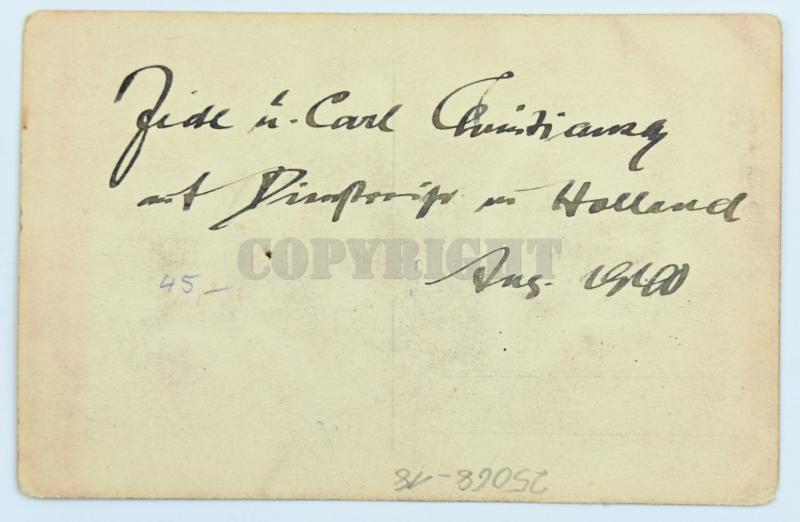 u. Carl
auf Dienstreise in Holland
COPYRIGHT
Aug. 1940
45,—
25068-18